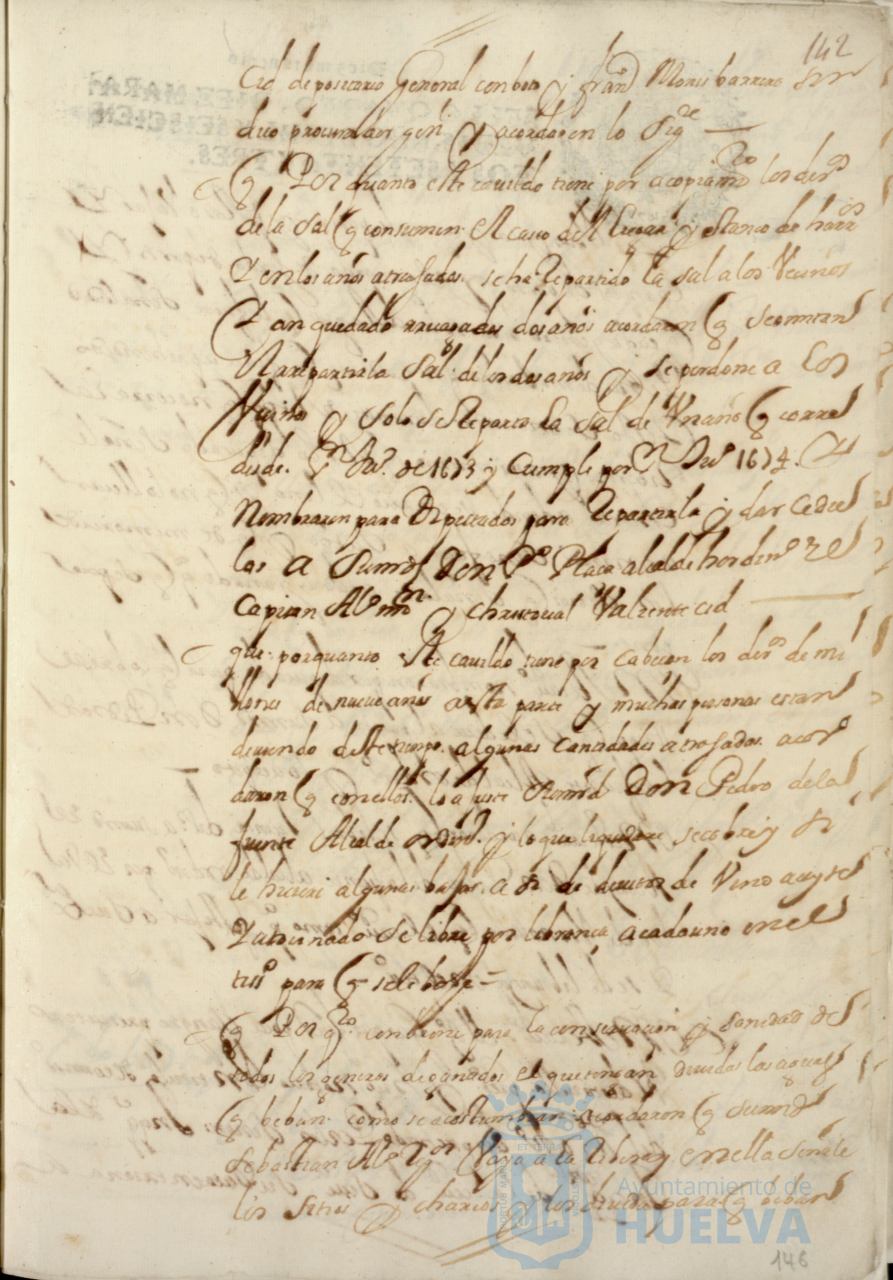 142
Cid deposetario General con boto y fran^co Moris barrero sin
dico procurador gen^l y acordaron lo sig^te
q Por quanto este cavildo tiene por acopiam^to los der^os
de la sal q consumen el casco del lugar y estanco de
Y en los años atrasados se ha repartido la sal a los Vecinos
Y an quedado dos años acordaron q
repartir la sal de los dos años y se perdone a los
Vecinos y solo se reparta la sal de Un año q corre
desde p^ro de 1673 y cumple por 1674 Y
Nombraron para Diputados para repartirla y dar cedu
las a Sumrd Don P^o Plaza alcalde hordin^o Y el
Capitan Al^o min y christoual Valiente cid
que por quanto este cavildo tiene por cabeson los der^os de mi
llones de nueve años a esta parte y muchas personas estan
deviendo deste tiempo algunas cantidades atrasadas acor
daron q con ellos lo ajuste Sumrd Don Pedro de la
fuente Alcalde ordin^o y lo que liquidare se cobre y si
le hiciere algunas bajas a si de deuitos de Vino
Y atocinado se libre por librança a cada uno en el
tes^ro para q se le baxe =
q Por q^to conbiene para la conseruacion y sanidad de
todos los generos de ganados el que tengan deuidas las aguas
q beban como se acostumbran acordaron q sumrd
Sebastian Al^o Vaya a la Ribera y en ella señale
los sitios y charcos para q beban
Ayuntamiento de
HUELVA
146